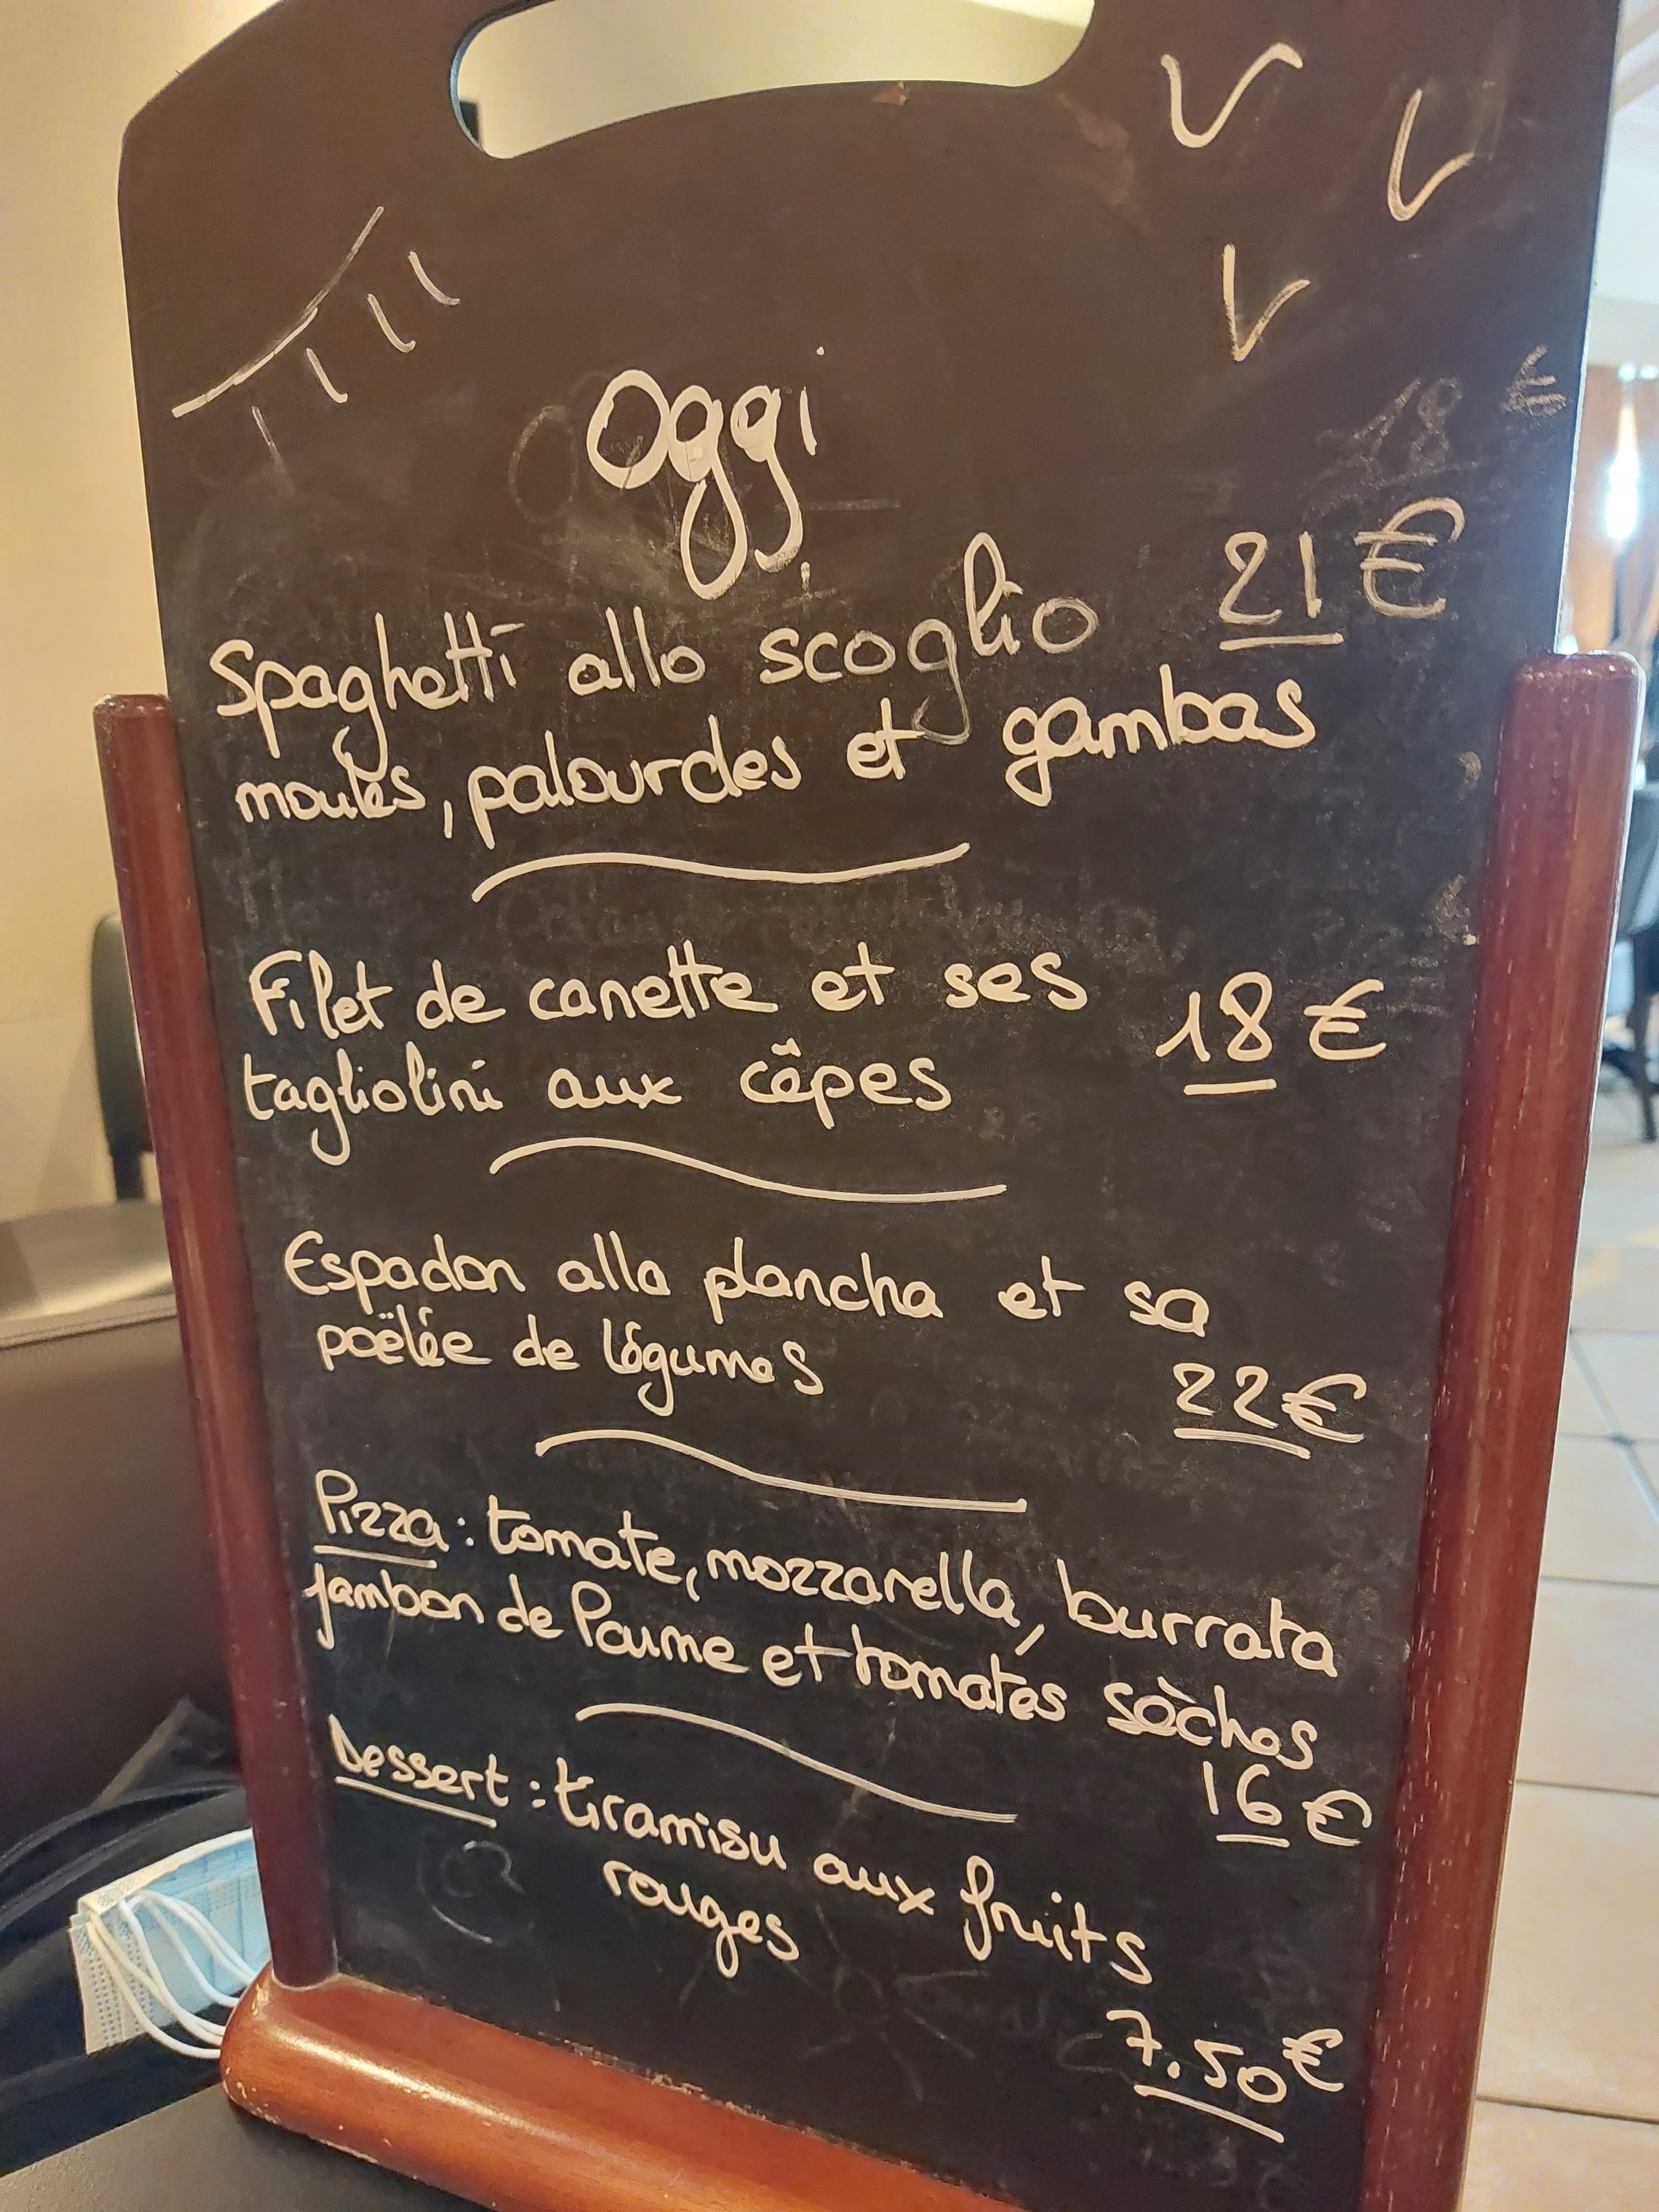 Oggi
18 €
Spaghetti allo scoglio 21 €
moules, palourdes et gambas
Filet de canette et ses
tagliolini aux cêpes 18 €
Espadon alla plancha et sa
poëlée de légumes 22 €
Pizza : tomate, mozzarella, burrata
jambon de Parme et tomates sèches
16 €
Dessert : tiramisu aux fruits
rouges
7.50 €